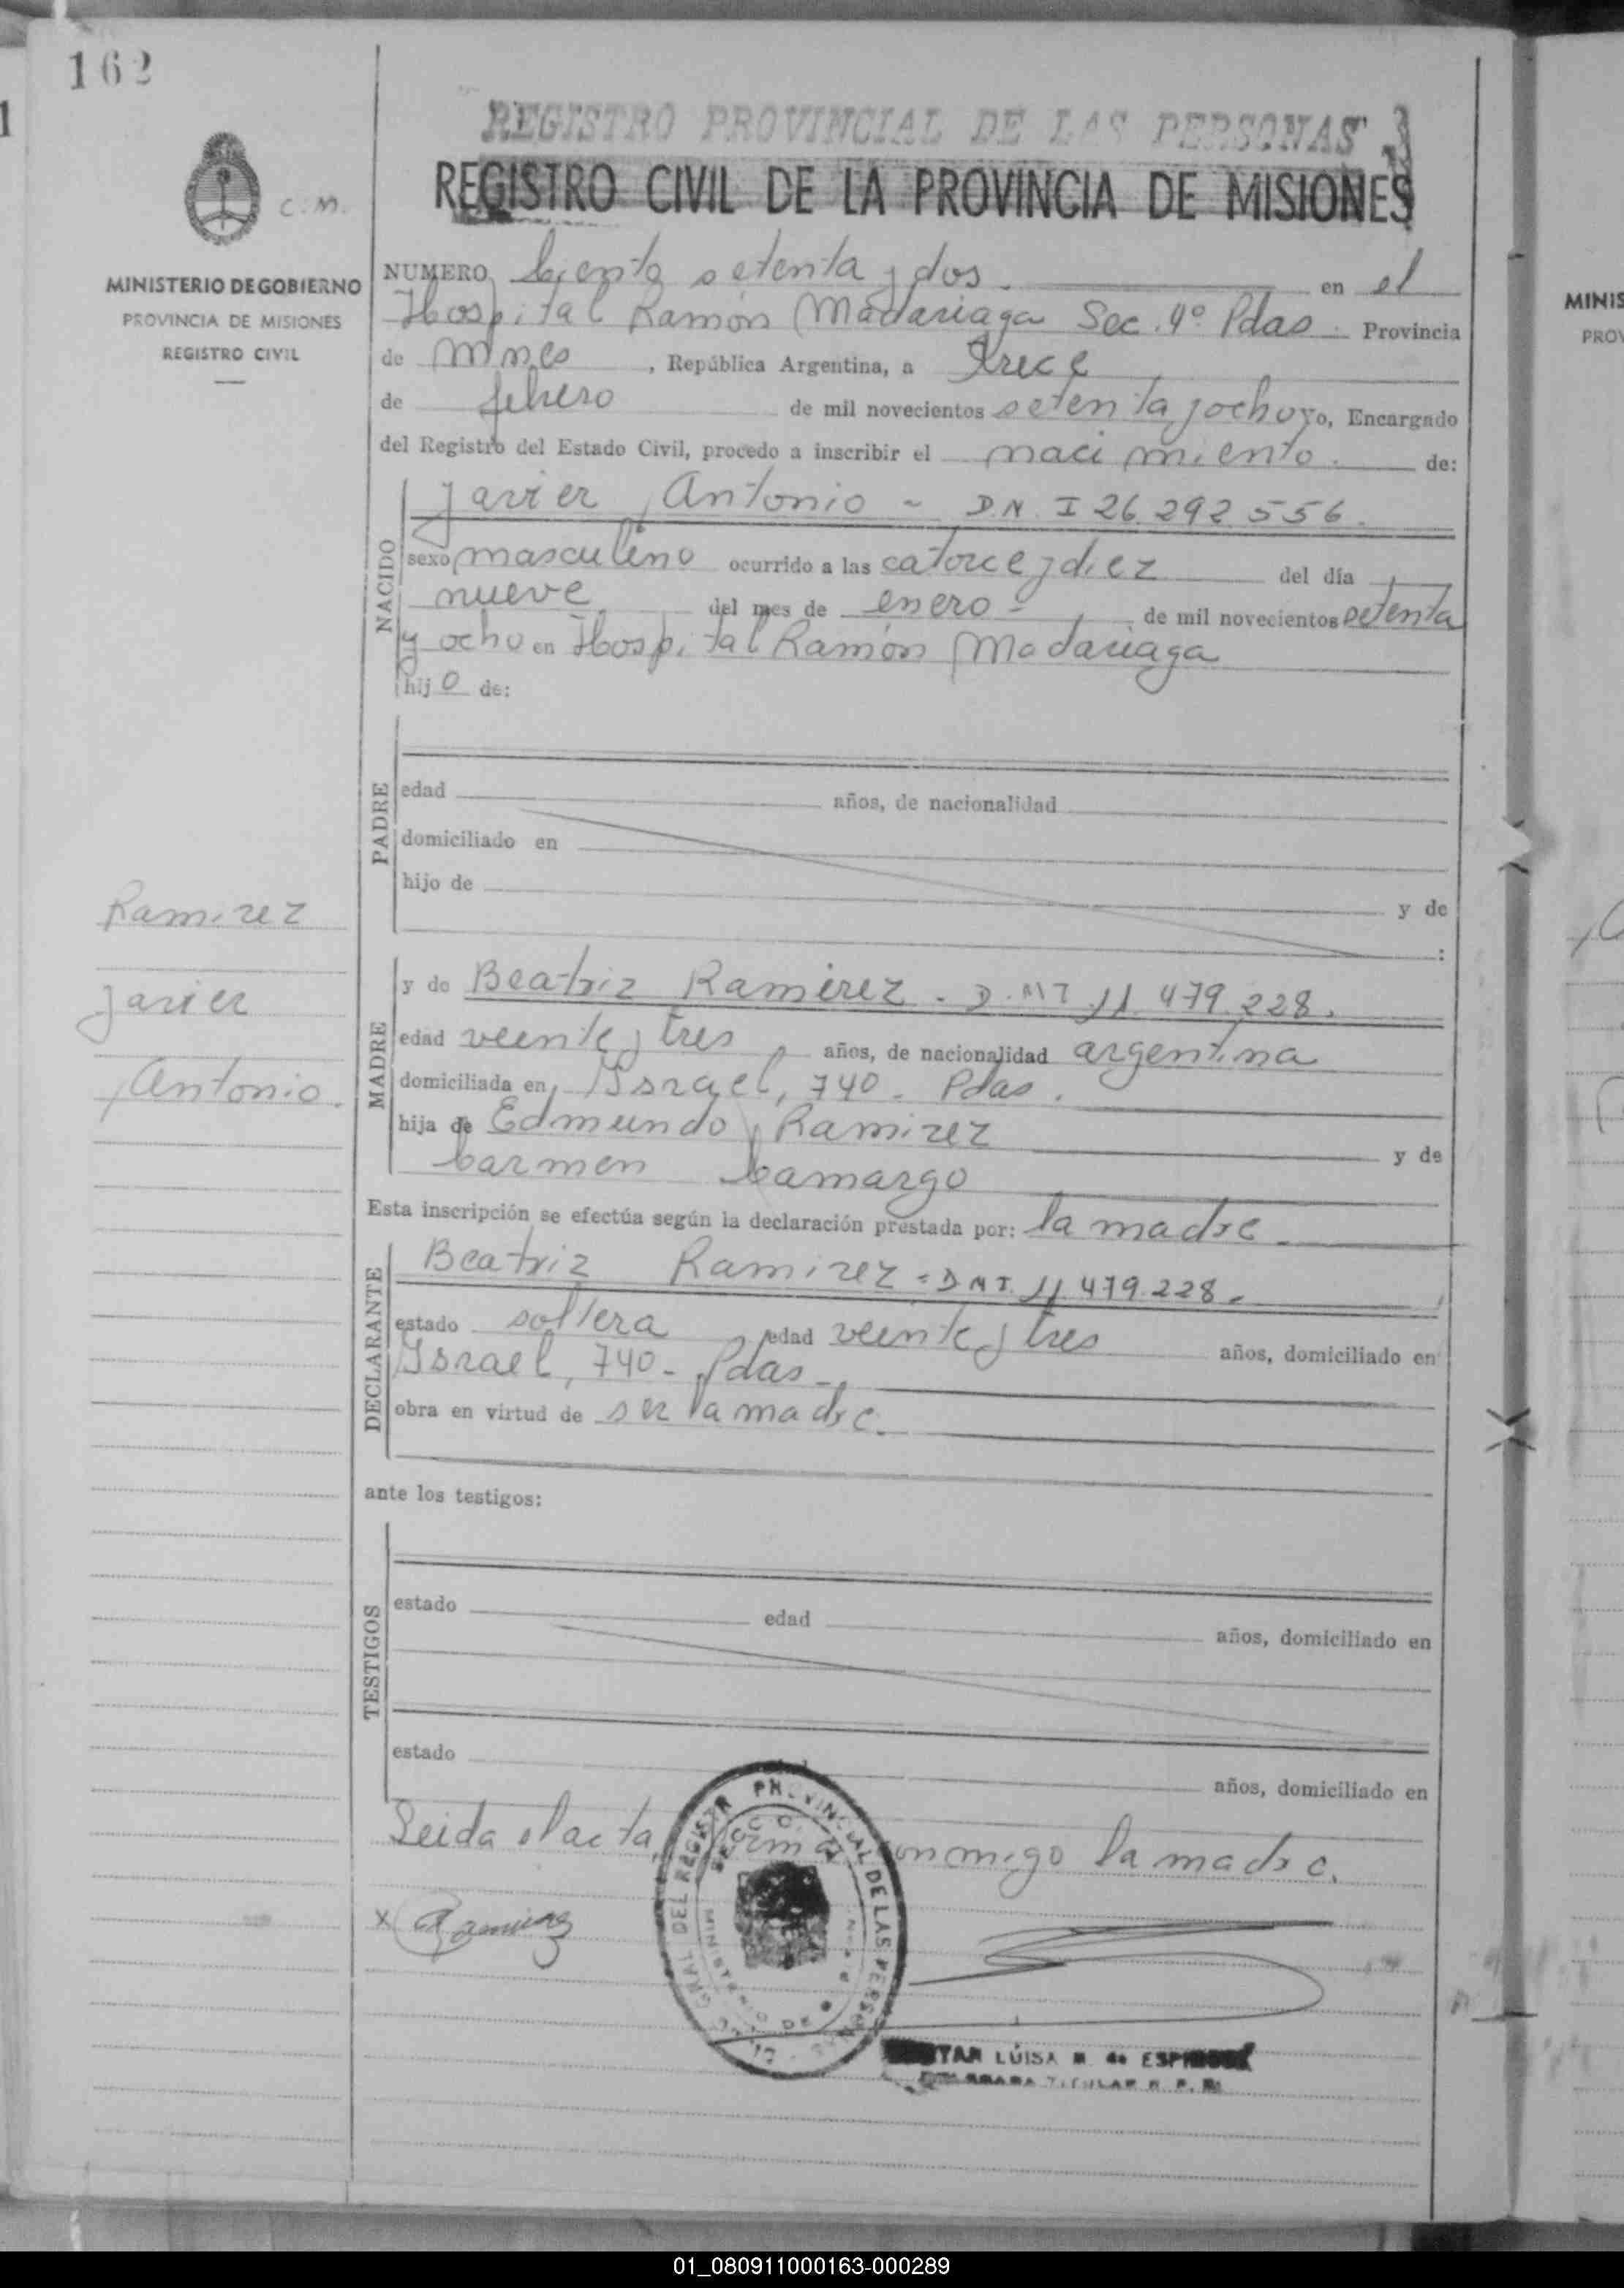 162
REGISTRO PROVINCIAL DE LAS PERSONAS
REGISTRO CIVIL DE LA PROVINCIA DE MISIONES
C.M.
MINISTERIO DE GOBIERNO
PROVINCIA DE MISIONES
REGISTRO CIVIL
NUMERO Ciento setenta y dos. en el
Hospital Ramón Madariaga Sec. 4º Pdas. Provincia
de Mnes, República Argentina, a trece
de febrero de mil novecientos setenta y ocho yo, Encargado
del Registro del Estado Civil, procedo a inscribir el nacimiento. de:
NACIDO
Javier Antonio - D.N.I 26.292.556.
sexo masculino ocurrido a las catorce y diez del día
nueve del mes de enero - de mil novecientos setenta
y ocho en Hospital Ramón Madariaga
hijo de:
PADRE
edad años, de nacionalidad
domiciliado en
hijo de y de
:
Ramirez
Javier
Antonio.
MADRE
y de Beatriz Ramirez - D.NI 11.479.228.
edad veinte y tres, años, de nacionalidad argentina
domiciliada en Israel, 740 - Pdas.
hija de Edmundo Ramirez y de
Carmen Camargo
Esta inscripción se efectúa según la declaración prestada por: la madre.
DECLARANTE
Beatriz Ramirez - D.N.I. 11.479.228.
estado soltera edad veinte y tres años, domiciliado en
Israel, 740 - Pdas -
obra en virtud de ser la madre.
ante los testigos:
TESTIGOS
estado edad años, domiciliado en
estado años, domiciliado en
Leida el acta, firma conmigo la madre.
x Ramirez
REGISTR PROVINCIAL DE LAS PERSONAS
MINISTERIO DE
LUISA M. de
TITULAR R. P.
MINIS
PROV
01_080911000163-000289